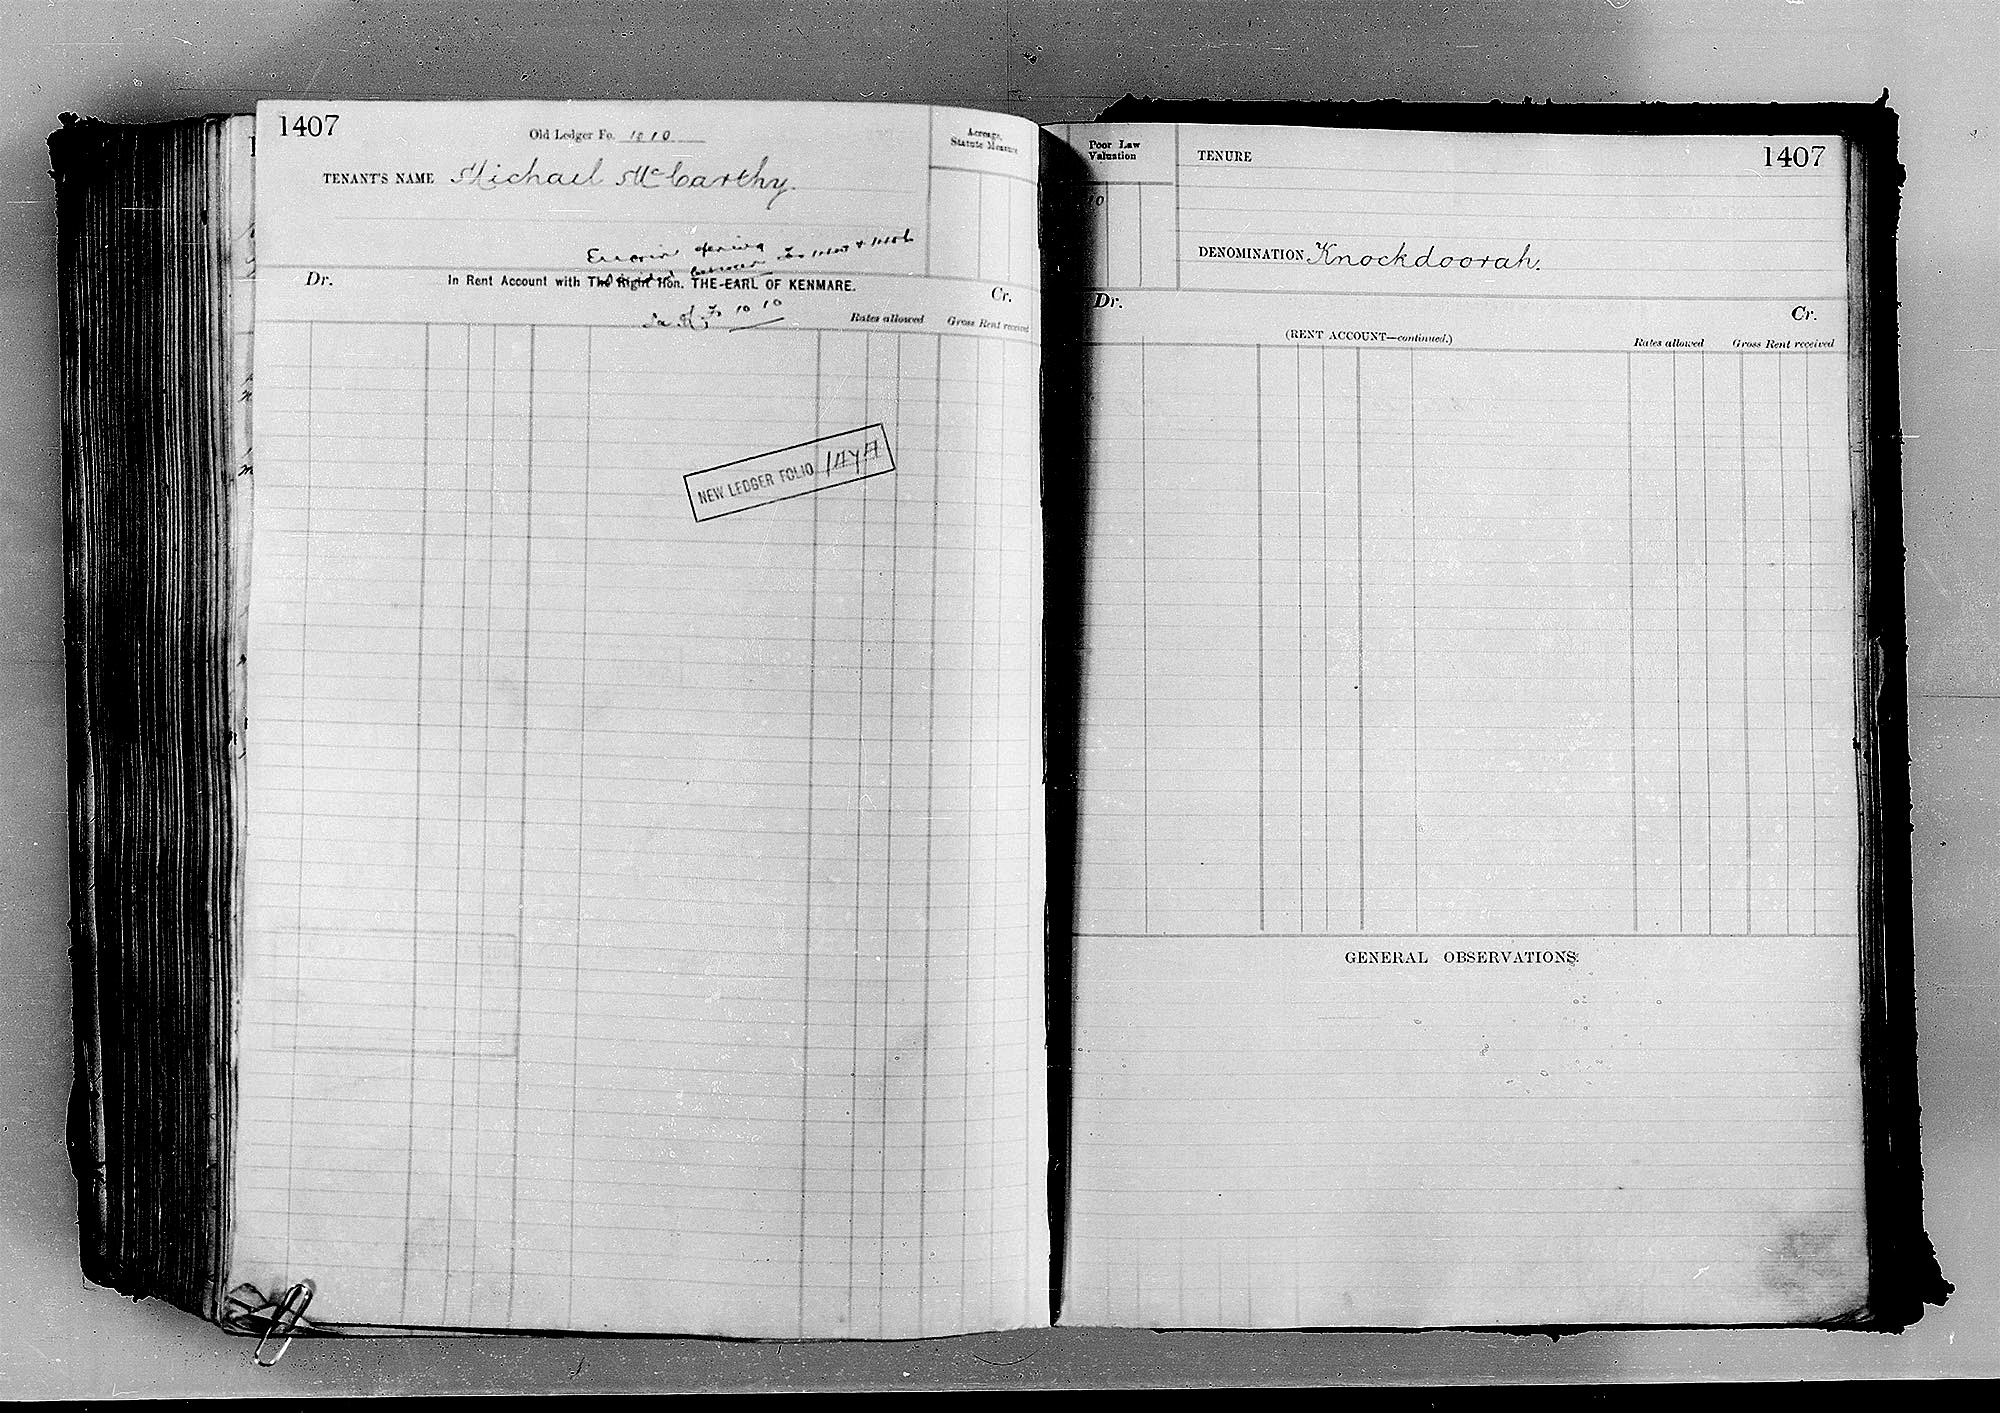 1407
Old Ledger Fo. 1010
Acreage,
Statute Measure
TENANT'S NAME Michael McCarthy.
Error
Dr.
In Rent Account with The Right Hon. THE EARL OF KENMARE.
Cr.
Fo 1010
Rates allowed
Gross Rent received
NEW LEDGER FOLIO
Poor Law
Valuation
TENURE
1407
DENOMINATION Knockdoorah.
Dr.
Cr.
(RENT ACCOUNT—continued.)
Rates allowed
Gross Rent received
GENERAL OBSERVATIONS.